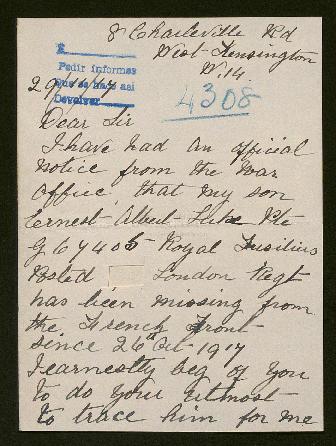 8 Charleville Rd
West Kensington
W.14.
29/11/17
Pedir informes
Devolver
4308
Dear Sir
I have had an official
notice from the War
Office, that my son
Ernest Albert Luke Pte
G 67405 Royal Fusiliers
Posted London Regt
has been missing from
the French Front
since 26th Oct 1917
I earnestly beg of you
to do your utmost
to trace him for me